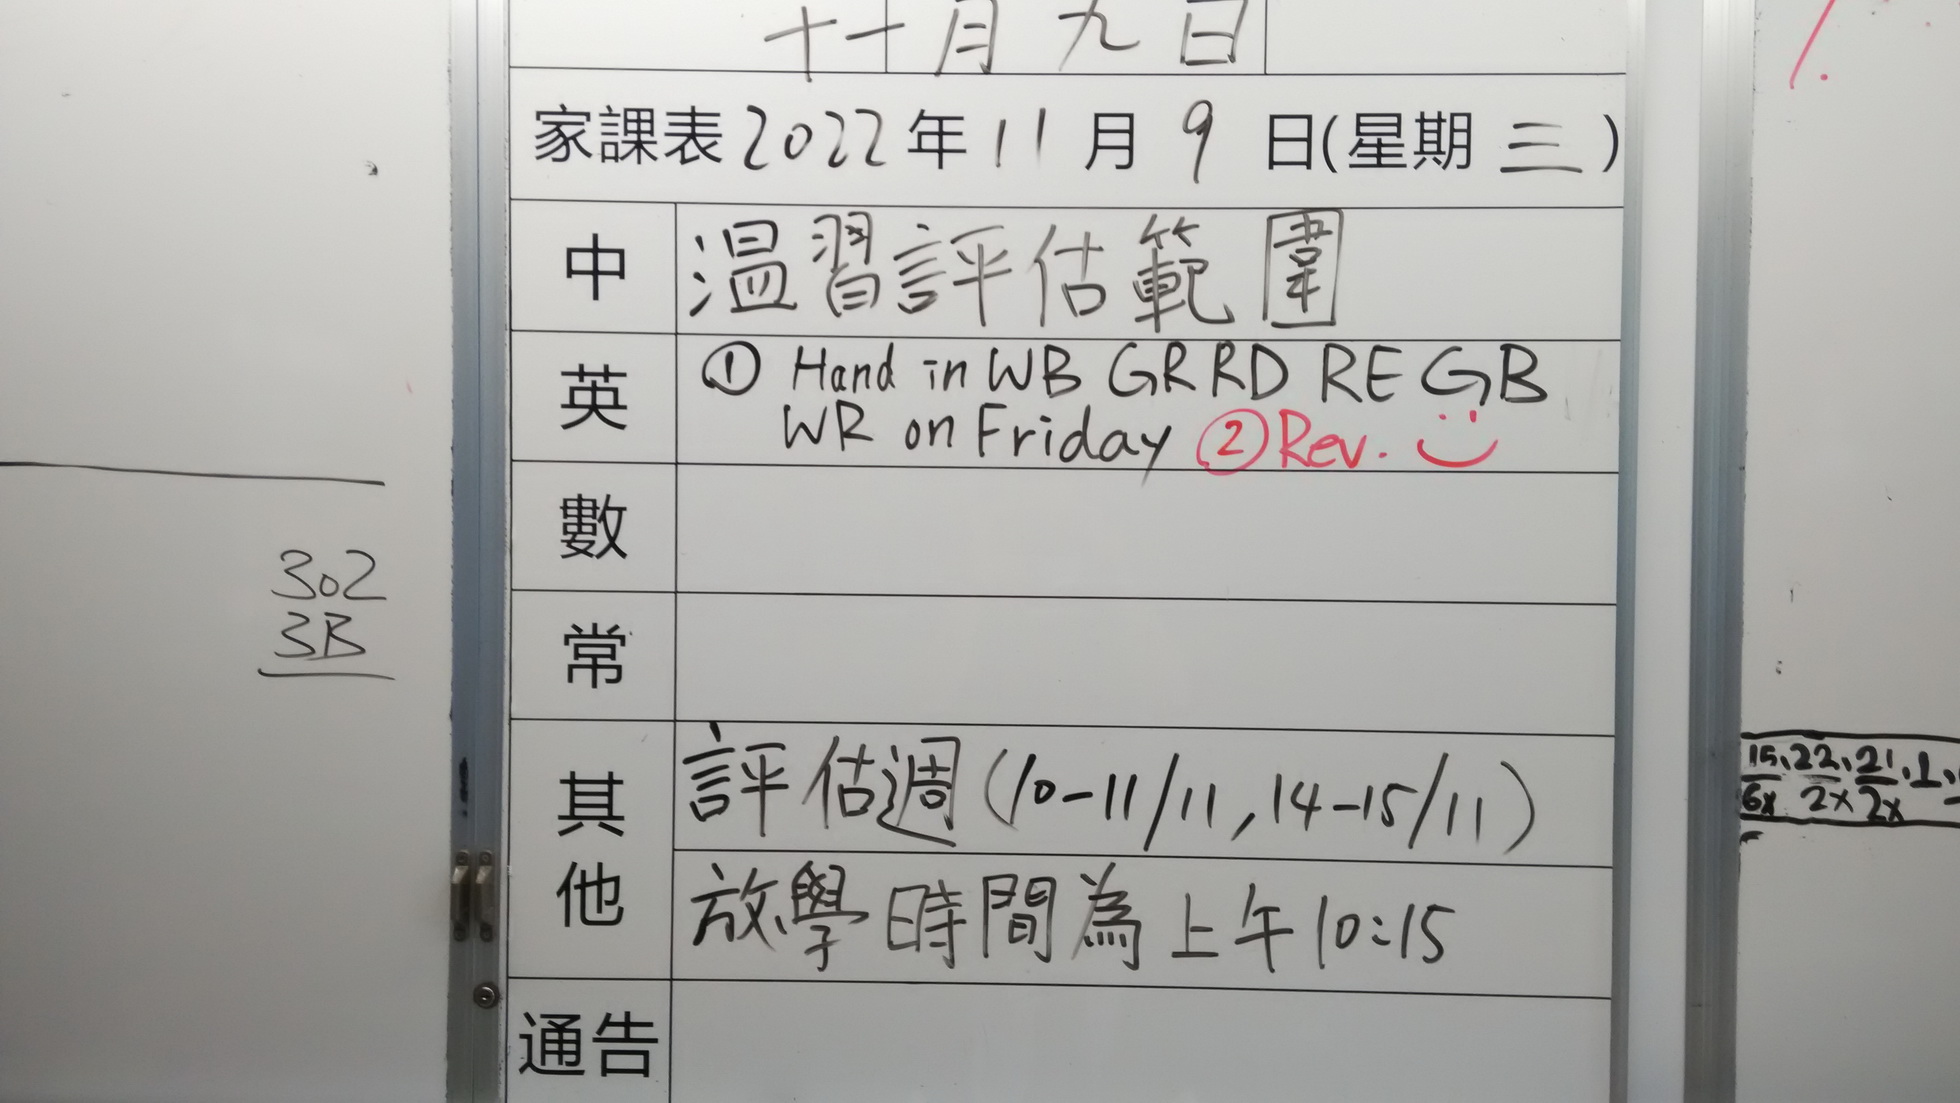 十一月九日
家課表2022年11月9日(星期三)
中 温習評估範圍
英 ① Hand in WB GR RD RE GB
WR on Friday ②Rev.
數
常
其他 評估週(10-11/11,14-15/11)
放學時間為上午10:15
通告
302
3B
15 22 21 1
6x 2x 2x